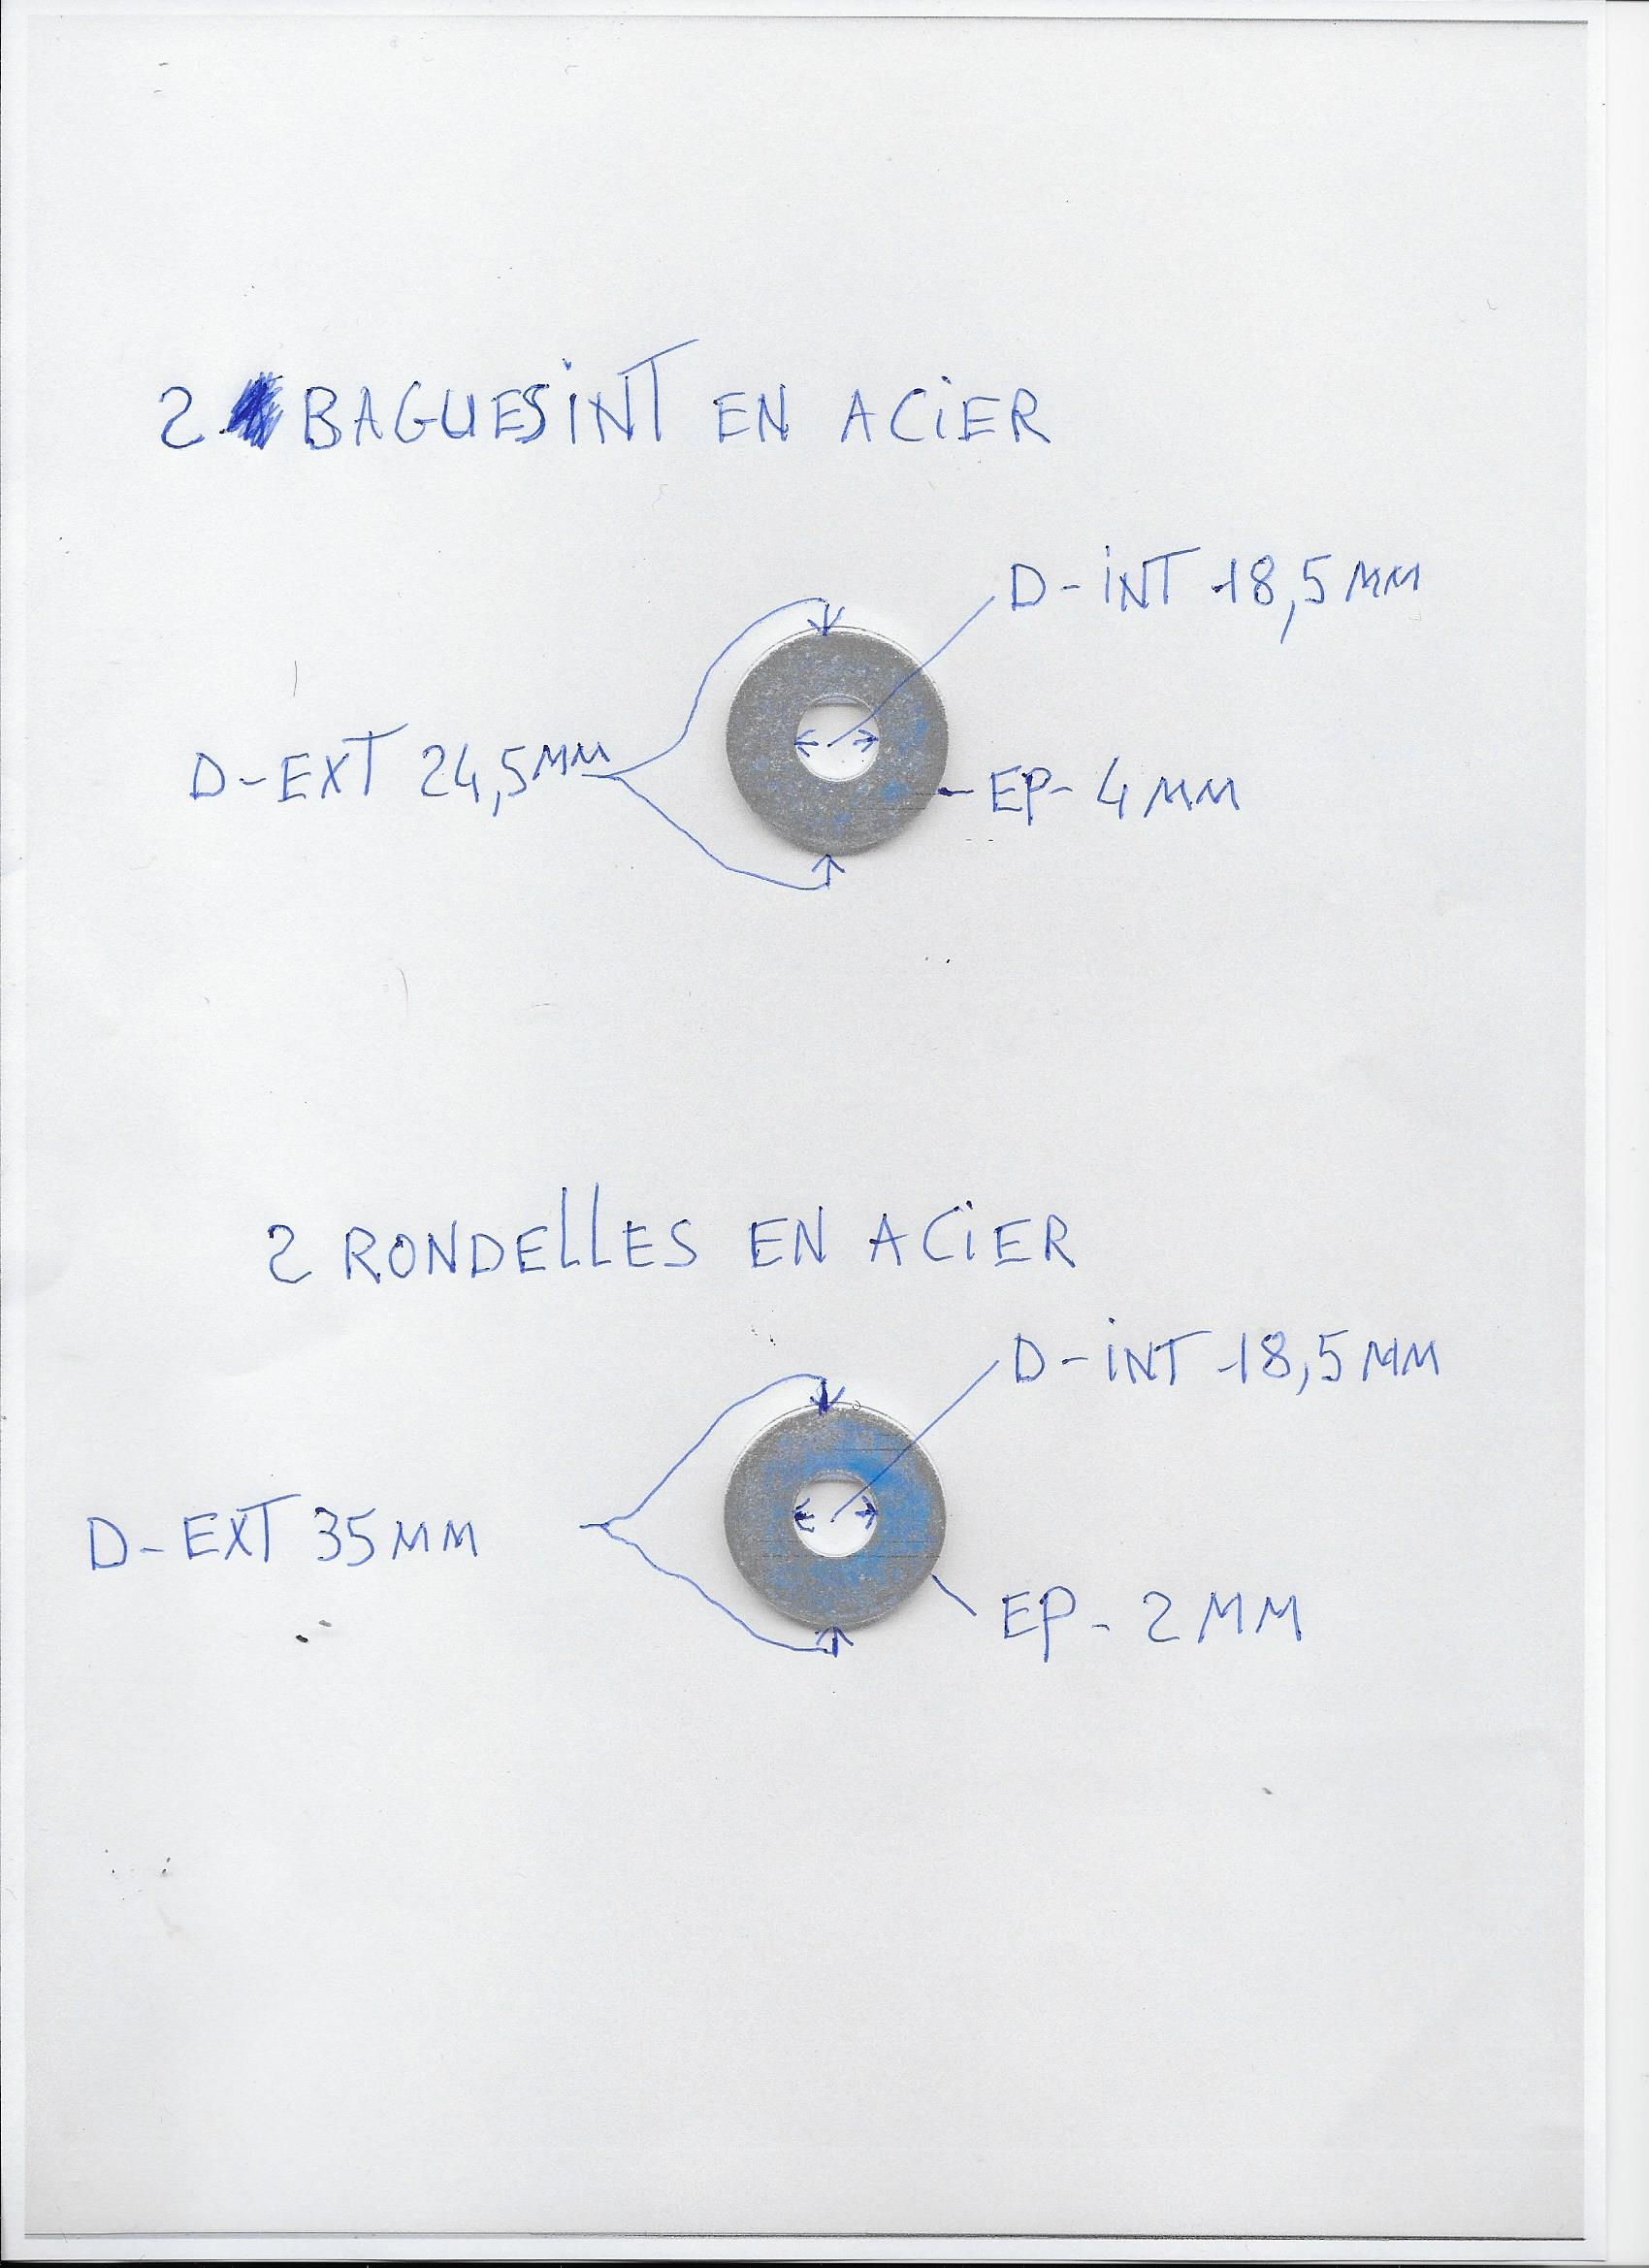 2 BAGUES INT EN ACIER
D-INT 18,5 MM
D-EXT 24,5 MM
EP- 4 MM
2 RONDELLES EN ACIER
D-INT 18,5 MM
D-EXT 35 MM
EP- 2 MM